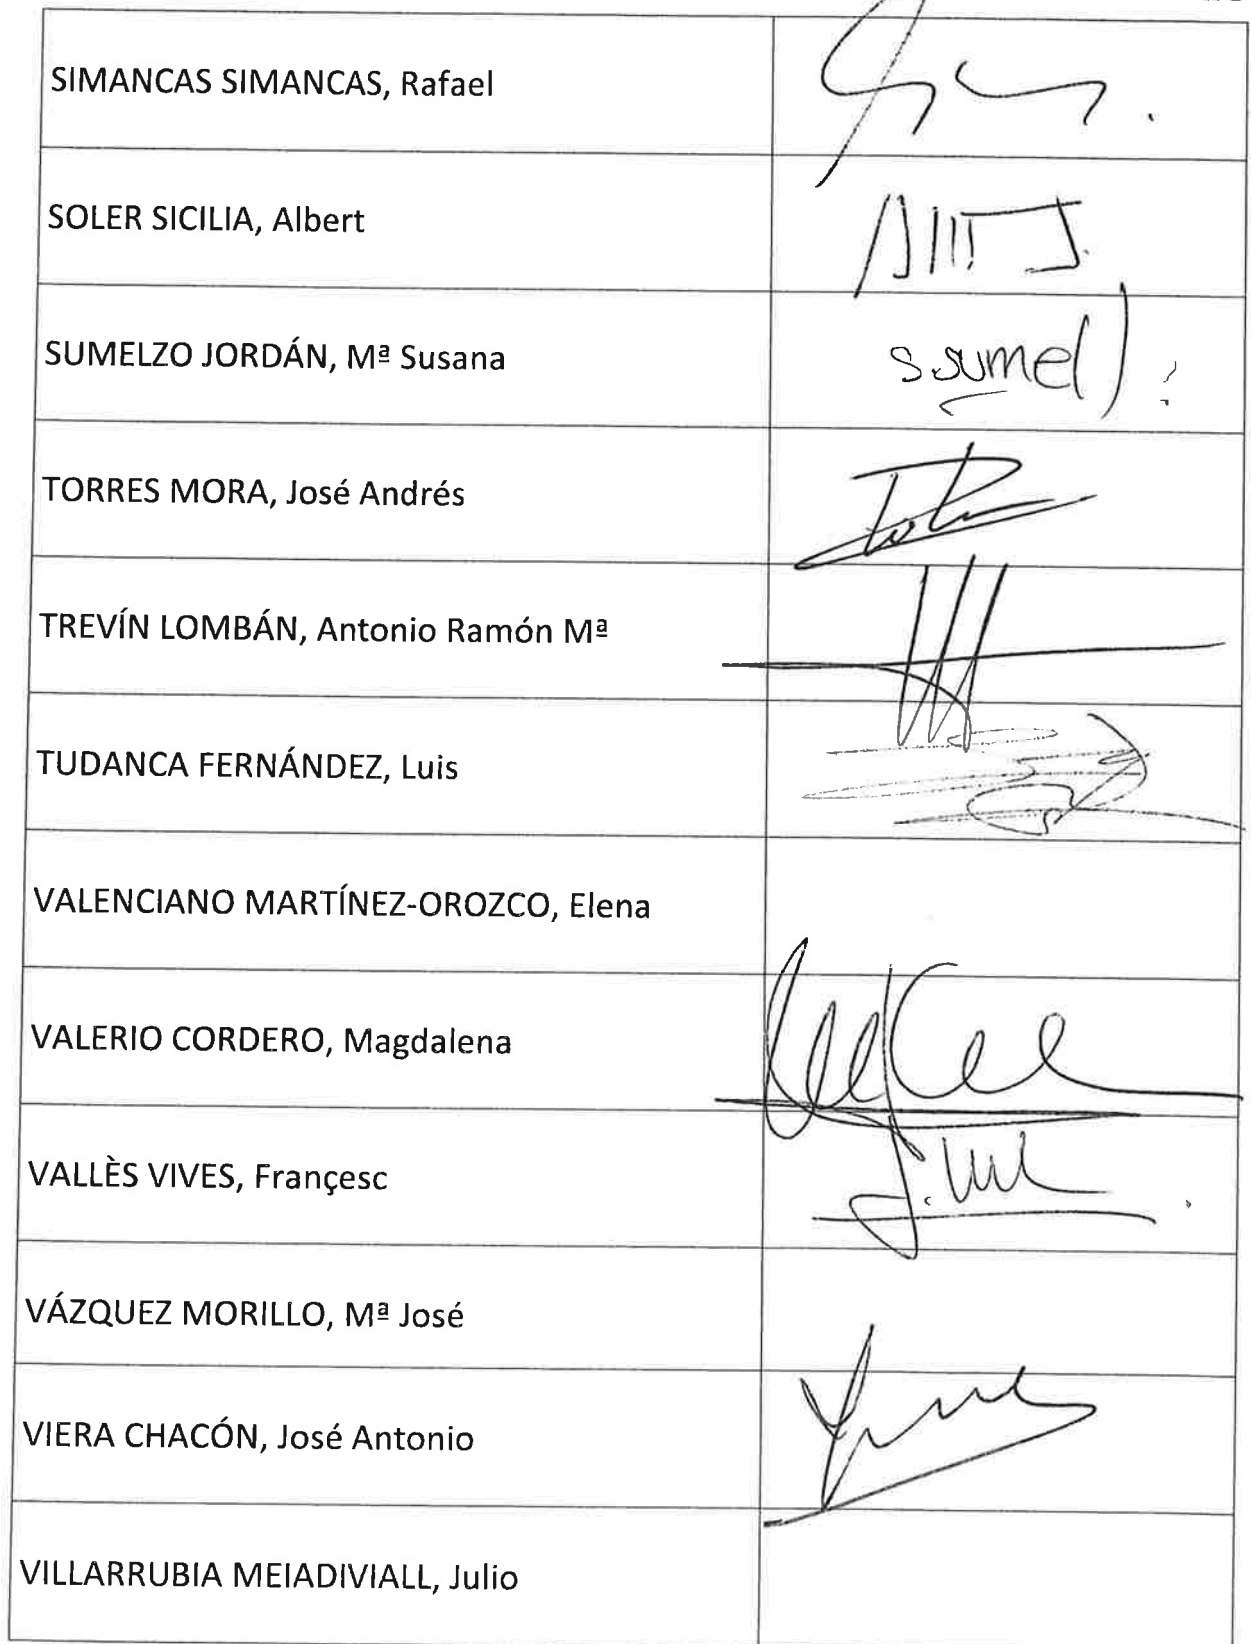 SIMANCAS SIMANCAS, Rafael
SOLER SICILIA, Albert
SUMELZO JORDÁN, Mª Susana
s.sumel
TORRES MORA, José Andrés
TREVÍN LOMBÁN, Antonio Ramón Mª
TUDANCA FERNÁNDEZ, Luis
VALENCIANO MARTÍNEZ-OROZCO, Elena
VALERIO CORDERO, Magdalena
VALLÈS VIVES, Françesc
VÁZQUEZ MORILLO, Mª José
VIERA CHACÓN, José Antonio
VILLARRUBIA MEIADIVIALL, Julio